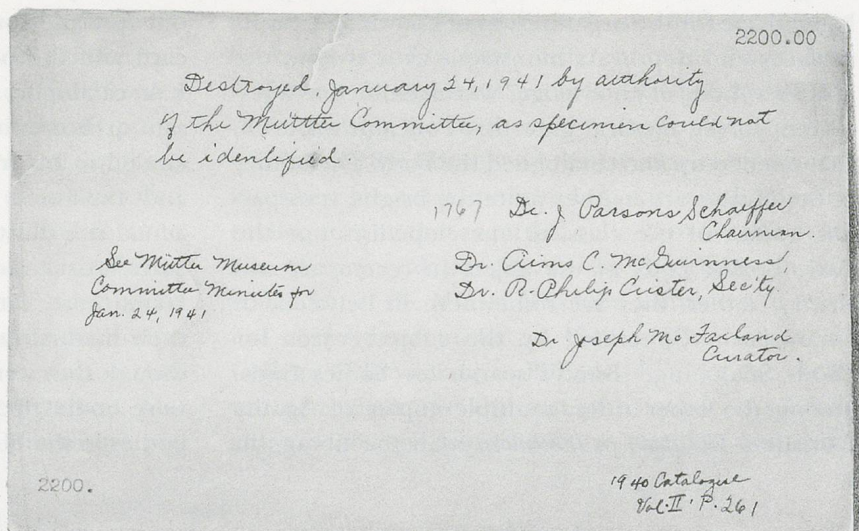 2200.00
Destroyed, January 24, 1941 by authority
of the Mütter Committee, as specimen could not
be identified.
1767 Dr. J Parsons Schaeffer
Chairman.
Dr. Aims C. McGuinness
Dr. R. Philip Custer, Sec'ty.
See Mütter Museum
Committee Minutes for
Jan. 24, 1941
Dr Joseph McFarland
Curator.
2200.
1940 Catalogue
Vol. II. P. 261